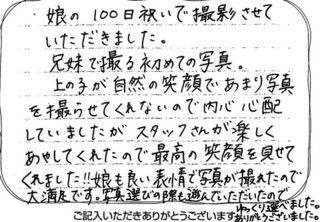 娘の100日祝いで撮影させて
いただきました。
兄妹で撮る初めての写真。
上の子が自然の笑顔であまり写真
を撮らせてくれないので内心心配
していましたがスタッフさんが楽しく
あやしてくれたので最高の笑顔を見せて
くれました!!娘も良い表情で写真が撮れたので
大満足です。写真選びの際も遊んでいただいたので
ゆっくり選べました。
ありがとうございました。
ご記入いただきありがとうございます